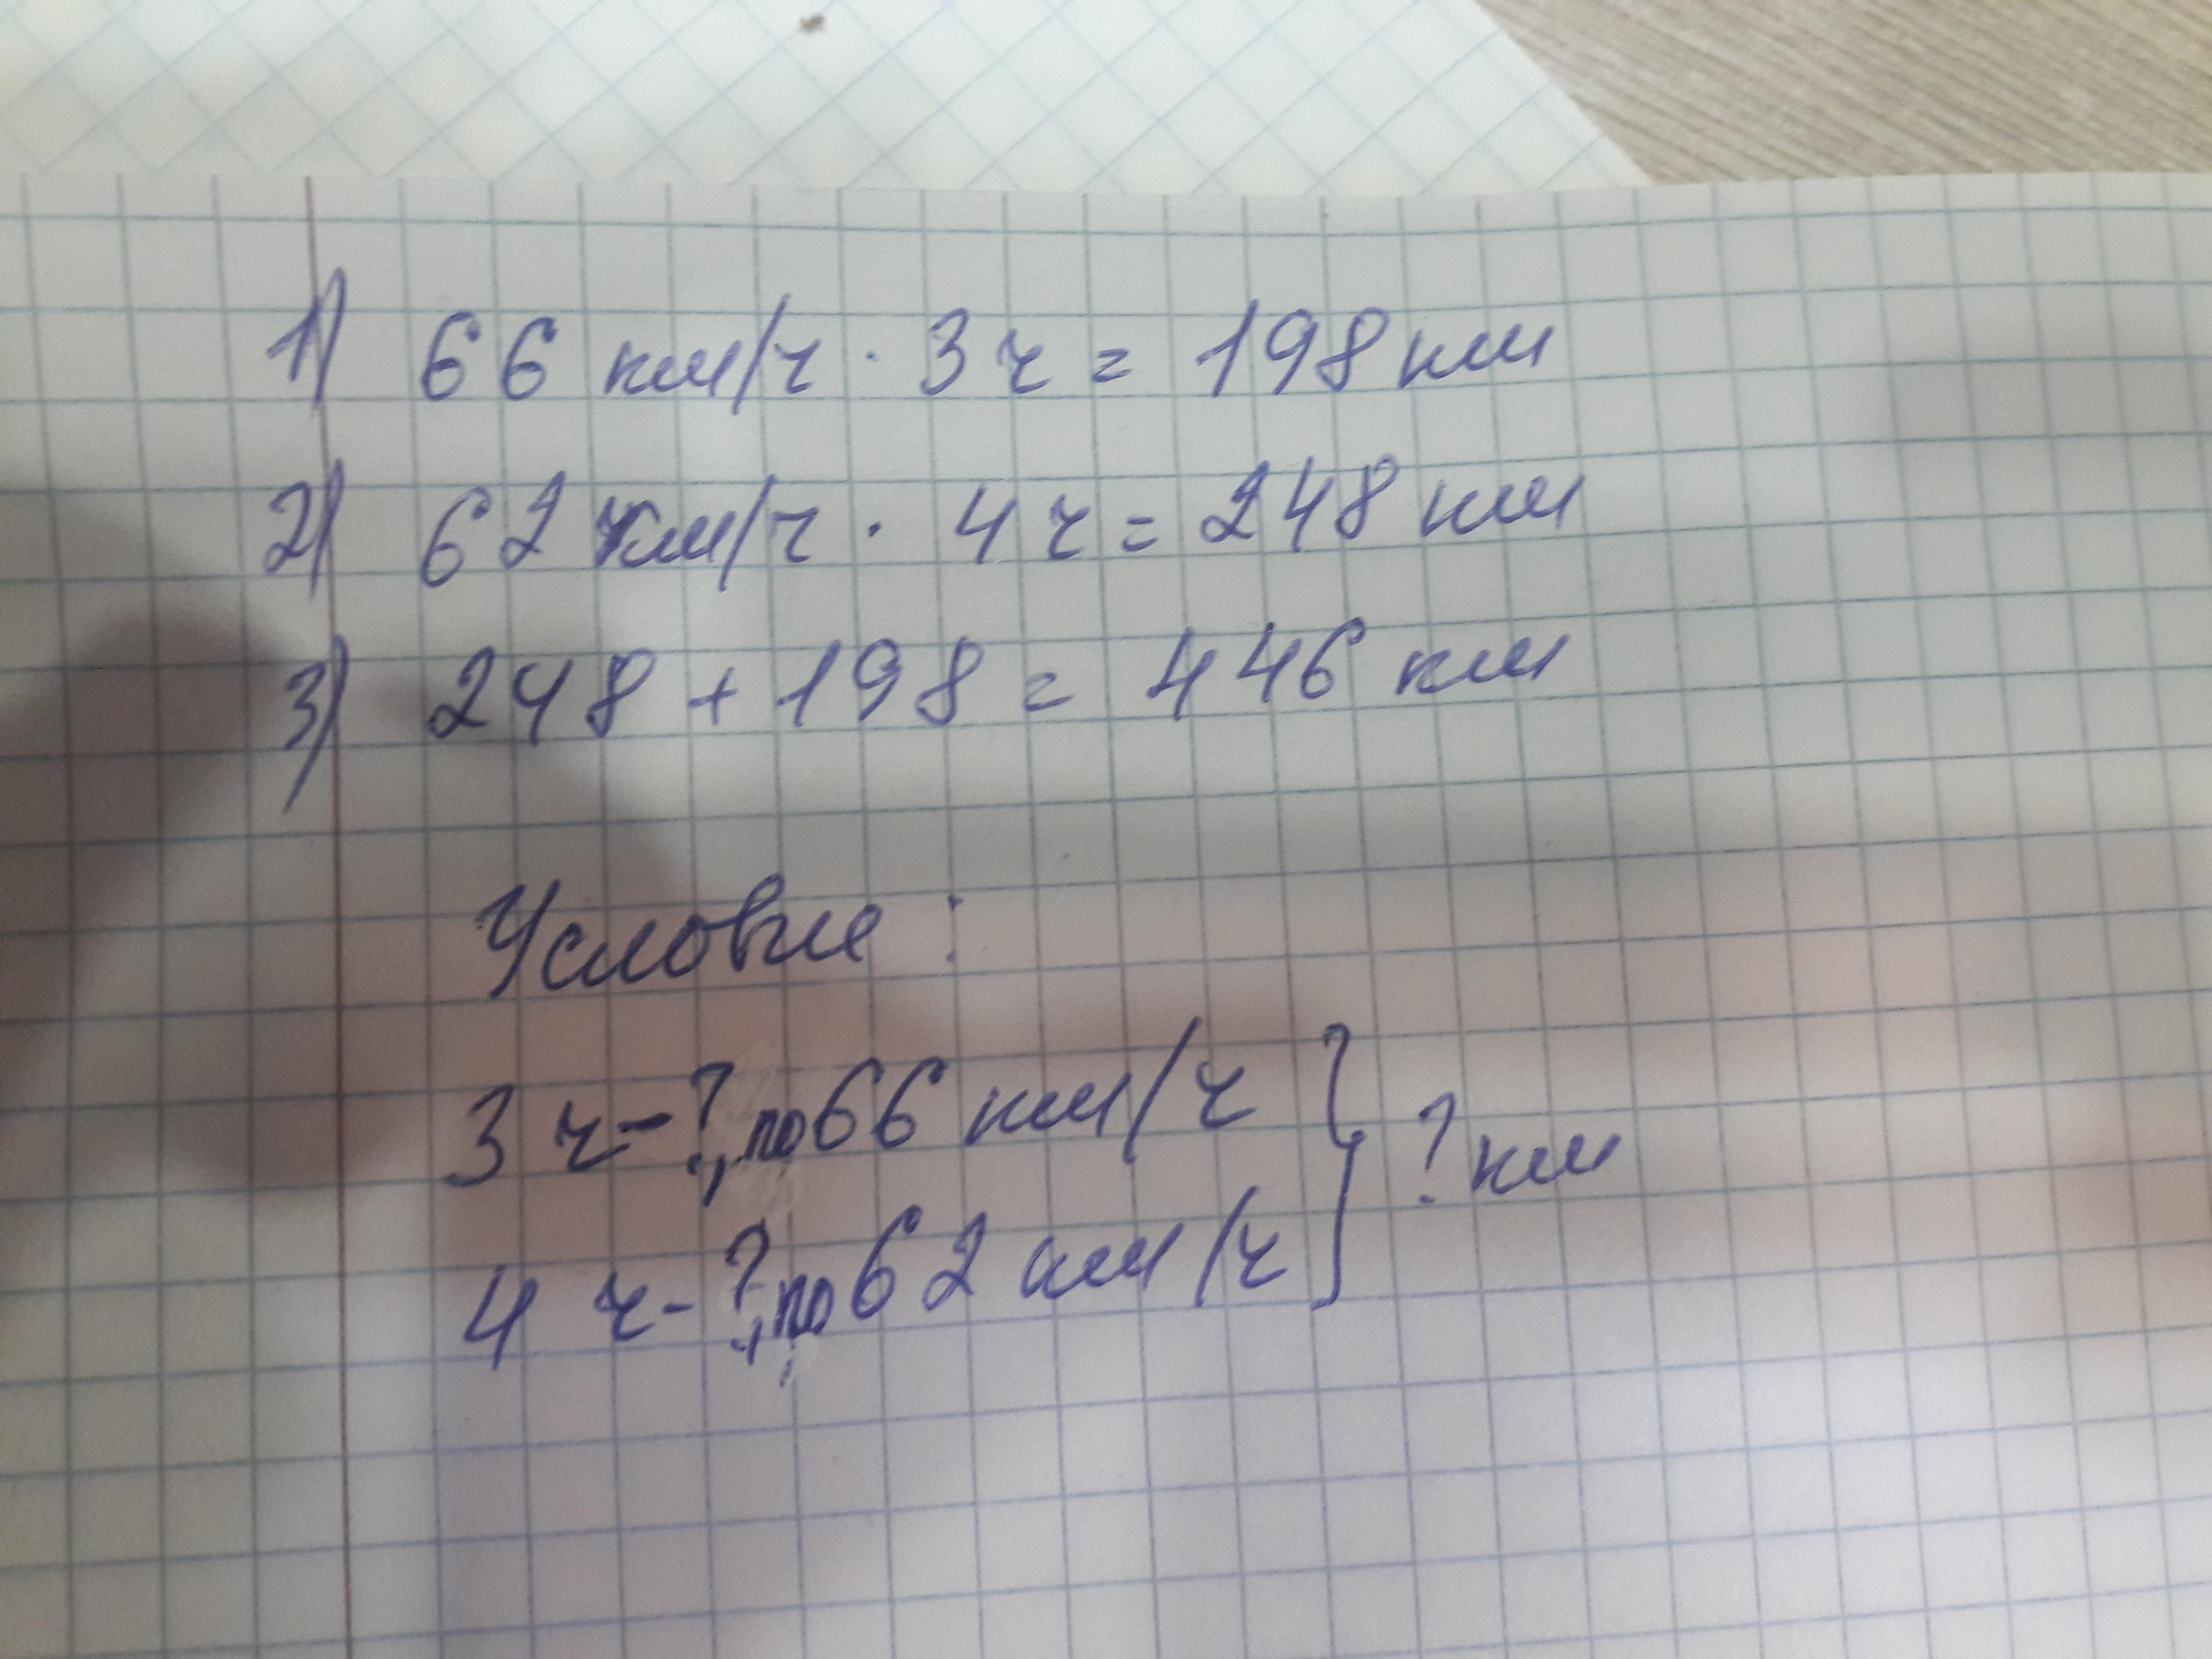 1) 66 км/ч · 3 ч = 198 км
2) 62 км/ч · 4 ч = 248 км
3) 248 + 198 = 446 км
Условие :
3 ч - ?, по 66 км/ч
4 ч - ?, по 62 км/ч } ? км